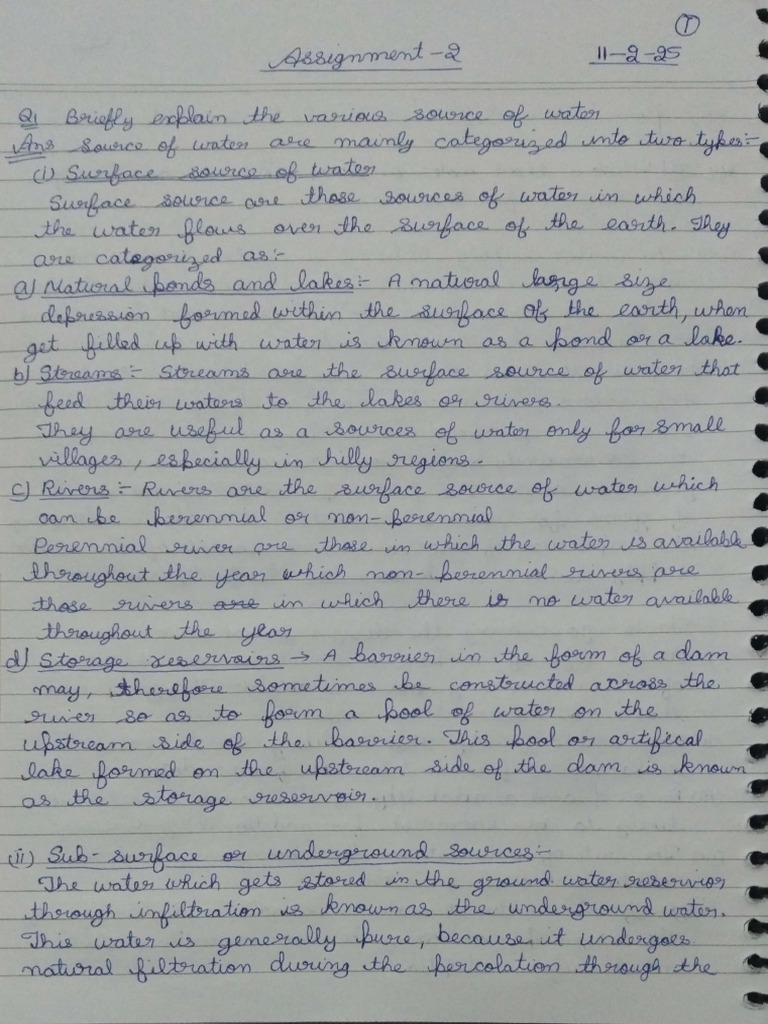 1
Assignment-2 11-2-25
Q1 Briefly explain the various source of water
Ans Source of water are mainly categorized into two types:-
(i) Surface source of water
Surface source are those sources of water in which
the water flows over the surface of the earth. They
are categorized as:-
a) Natural ponds and lakes:- A natural large size
depression formed within the surface of the earth, when
get filled up with water is known as a pond or a lake.
b) Streams:- Streams are the surface source of water that
feed their waters to the lakes or rivers.
They are useful as a sources of water only for small
villages, especially in hilly regions.
c) Rivers:- Rivers are the surface source of water which
can be perennial or non-perennial
Perennial river are those in which the water is available
throughout the year which non-perennial rivers are
those rivers are in which there is no water available
throughout the year
d) Storage reservoirs → A barrier in the form of a dam
may, therefore sometimes be constructed across the
river so as to form a pool of water on the
upstream side of the barrier. This pool or artifical
lake formed on the upstream side of the dam is known
as the storage reservoir.
(ii) Sub-surface or underground sources:-
The water which gets stored in the ground water reservior
through infiltration is known as the underground water.
This water is generally pure, because it undergoes
natural filtration during the percolation through the